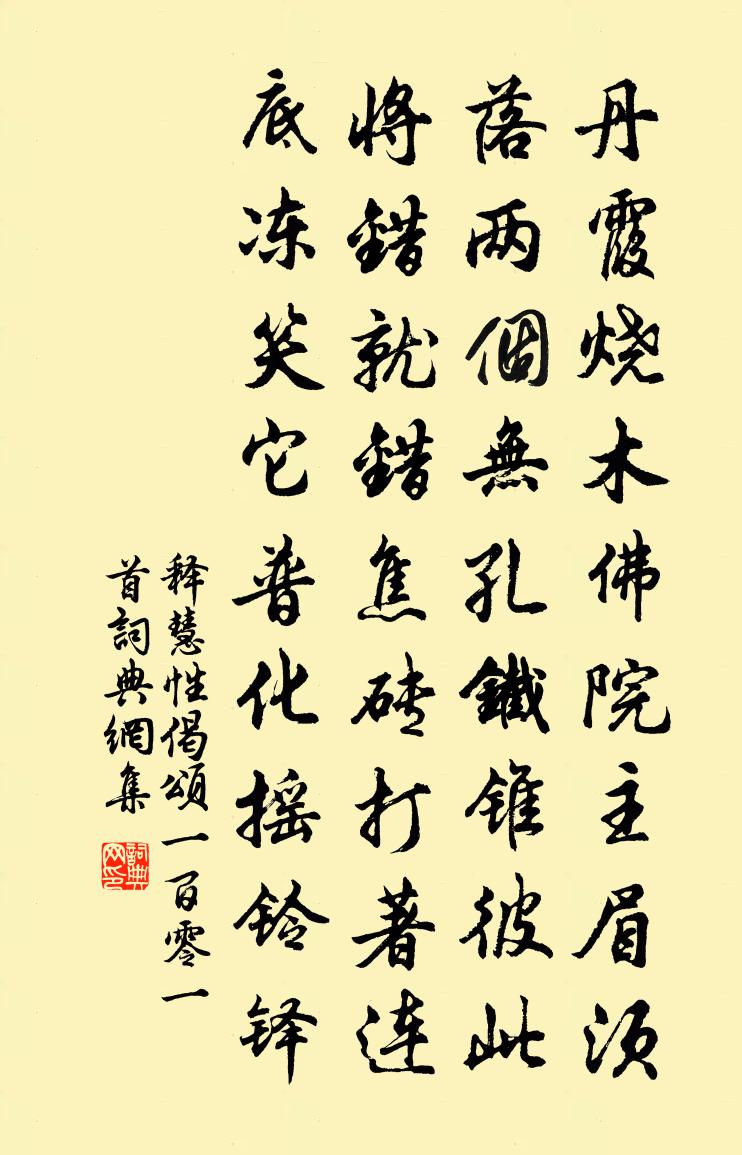 丹霞烧木佛院主眉须
落两個無孔鐵锥彼此
將錯就錯焦砖打著連
底冻笑它普化摇铃铎
释慧性偈頌一百零一
首詞典網集
詞典网印